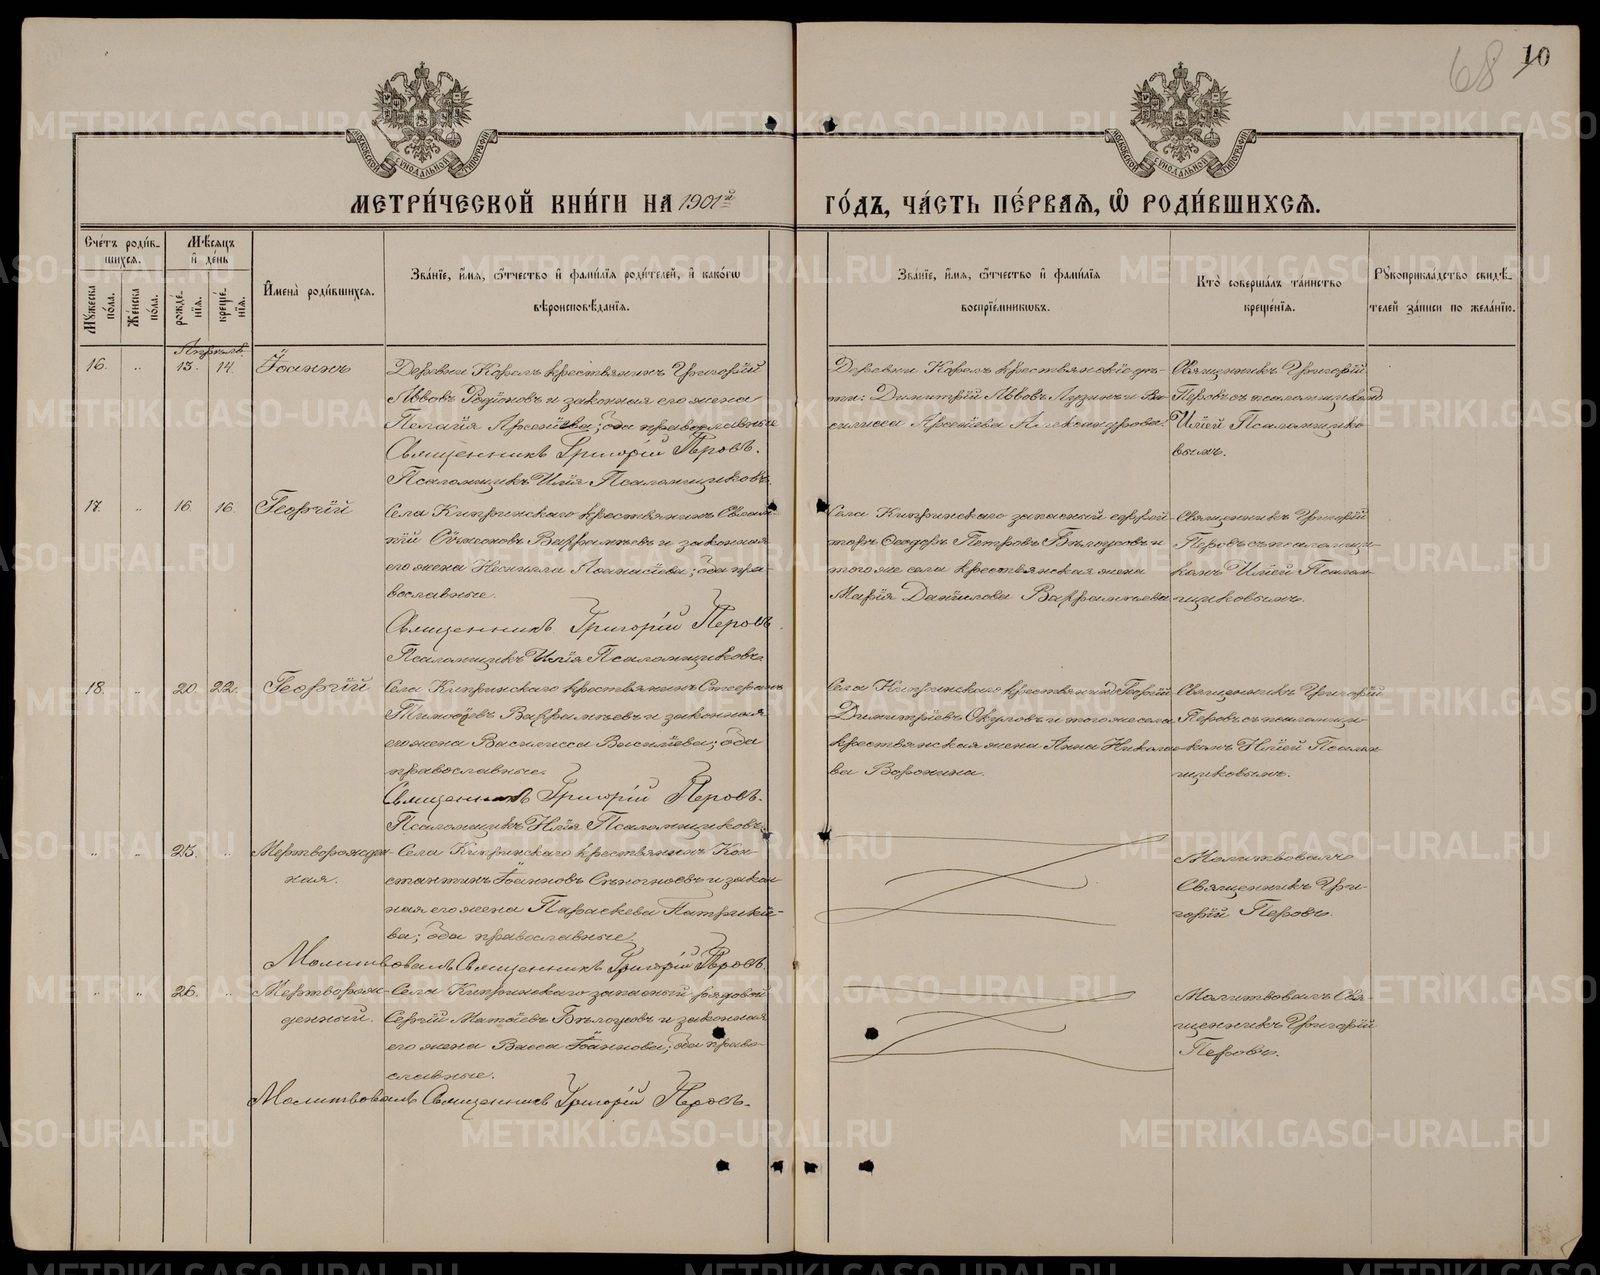 68 10
МОСКОВСКОЙ СѴНОДАЛЬНОЙ ТИПОГРАФІИ
МОСКОВСКОЙ СѴНОДАЛЬНОЙ ТИПОГРАФІИ
МЕТРИ́ЧЕСКОЙ КНИ́ГИ НА 1901й
ГО́ДЪ, ЧА́СТЬ ПЕ́РВАѦ, Ѽ РОДИ́ВШИХСѦ.
Сче́тъ роди́в-
шихся.
Мѣ́сяцъ
и҆ де́нь
Мꙋ́жеска
по́ла.
Же́нска
по́ла.
рожде́-
нїя.
креще́-
нїя.
И҆мена̀ роди́вшихся.
Зва́нїе, и҆́мя, ѻ҆́тчество и҆ фами́лїя роди́телей, и҆ како́гѡ
вѣроисповѣ́данїя.
Зва́нїе, и҆́мя, ѻ҆́тчество и҆ фами́лїя
воспрїе́мниковъ.
Кто̀ соверша́лъ та́инство
креще́нїя.
Рꙋкоприкла́дство свидѣ́-
телей за́писи по жела́нїю.
Апрѣль.
16. „ 13. 14. Іоаннъ
Деревни крестьянинъ Григорій
Львовъ и законная его жена
Пелагія Арсеніева; оба православные
Священникъ Григорій Перовъ.
Псаломщикъ Илія Псаломщиковъ.
Деревни крестьянскіе дѣ-
ти: Димитрій Львовъ Лузинъ и Ва-
силисса Арсеніева Александрова.
Священникъ Григорій
Перовъ съ псаломщикомъ
Иліей Псаломщико-
вымъ.
17. „ 16. 16. Георгій
Села Кипринскаго крестьянинъ
Сѵмеоновъ Варфаломѣевъ и законная
его жена Аѳанасіева; оба пра-
вославные.
Священникъ Григорій Перовъ
Псаломщикъ Илія Псаломщиковъ.
Села Кипринскаго запасный
Ѳеодоръ Петровъ Бѣлоусовъ и
того же села крестьянская жена
Марія Даніилова
Священникъ Григорій
Перовъ съ псаломщи-
комъ Иліей Псалом-
щиковымъ.
18. „ 20. 22. Георгій
Села Кипринскаго крестьянинъ Стефанъ
Тимоѳеевъ и законная
его жена Василисса Василіева; оба
православные.
Священникъ Григорій Перовъ.
Псаломщикъ Илія Псаломщиковъ.
Села Кипринскаго крестьянинъ Георгій
Димитріевъ Окуловъ и того же села
крестьянская жена Анна Николае-
ва Воронина.
Священникъ Григорій
Перовъ съ псаломщи-
комъ Иліей Псалом-
щиковымъ.
„ „ 25. „ Мертворожден-
ная.
Села Кипринскаго крестьянинъ Кон-
стантинъ Іоанновъ и закон-
ная его жена Параскева Патрикіе-
ва; оба православные.
Молитвовалъ Священникъ Григорій Перовъ.
Молитвовалъ
Священникъ Гри-
горій Перовъ.
„ „ 26. „ Мертворож-
денный.
Села Кипринскаго запасный рядовой
Сергій Матѳіевъ Бѣлоусовъ и законная
его жена Васса Іоаннова; оба право-
славные.
Молитвовалъ Священникъ Григорій Перовъ.
Молитвовалъ Свя-
щенникъ Григорій
Перовъ.
METRIKI.GASO-URAL.RU